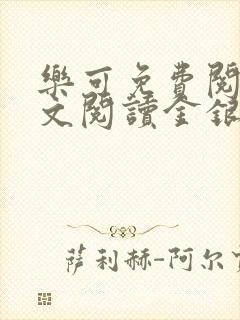 樂可免費閱
文閱讀全銀
萨利赫-阿尔